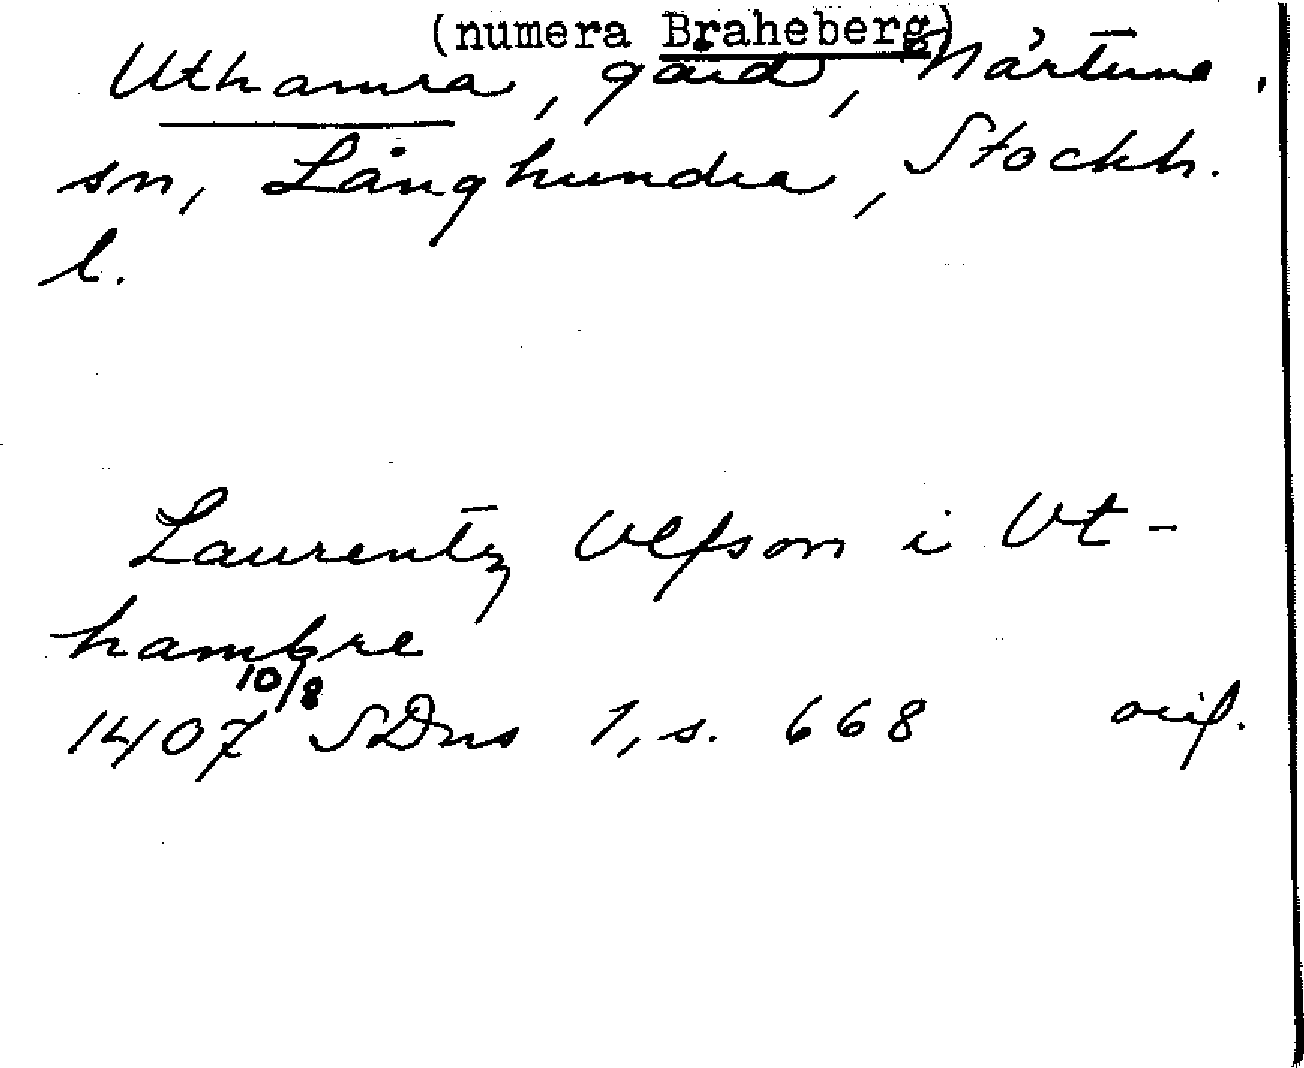 (numera Braheberg)
Uthamra, gård, Närtuna
sn, Långhundra, Stockh.
l.
Laurentz Vlfson i Vt-
hambre
1407 10/8 SDns 1, s. 668 orig.